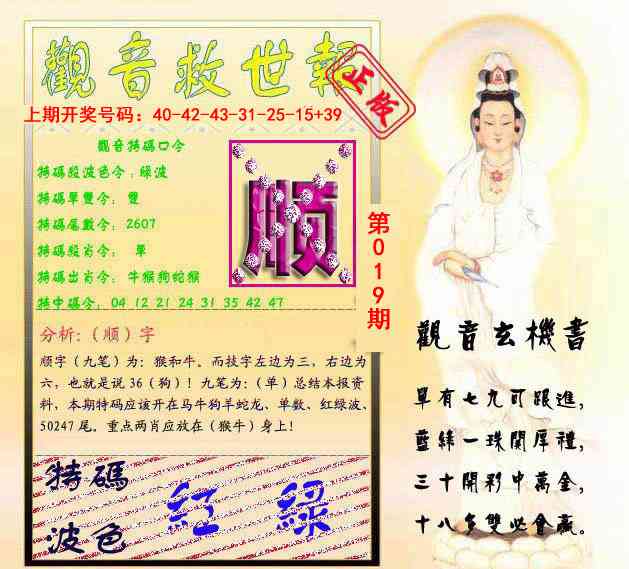 觀音救世報
正版
上期开奖号码：40-42-43-31-25-15+39
觀音特碼口令
特碼段波色令：綠波
特碼單雙令：雙
特碼尾數令：2607
特碼段肖令：單
特碼出肖令：牛猴狗蛇猴
特中碼令：04 12 21 24 31 35 42 47
顺
第019期
分析:（顺）字
顺字（九笔）为：猴和牛。而技字左边为三，右边为
六，也就是说36（狗）！九笔为：（单）总结本报资
料，本期特码应该开在马牛狗羊蛇龙、单数、红绿波、
50247尾。重点两肖应放在（猴牛）身上！
特碼
波色
紅 綠
觀音玄機書
單有七九可跟進，
藍綠一珠關厚禮，
三十開彩中萬金，
十八多雙必會贏。